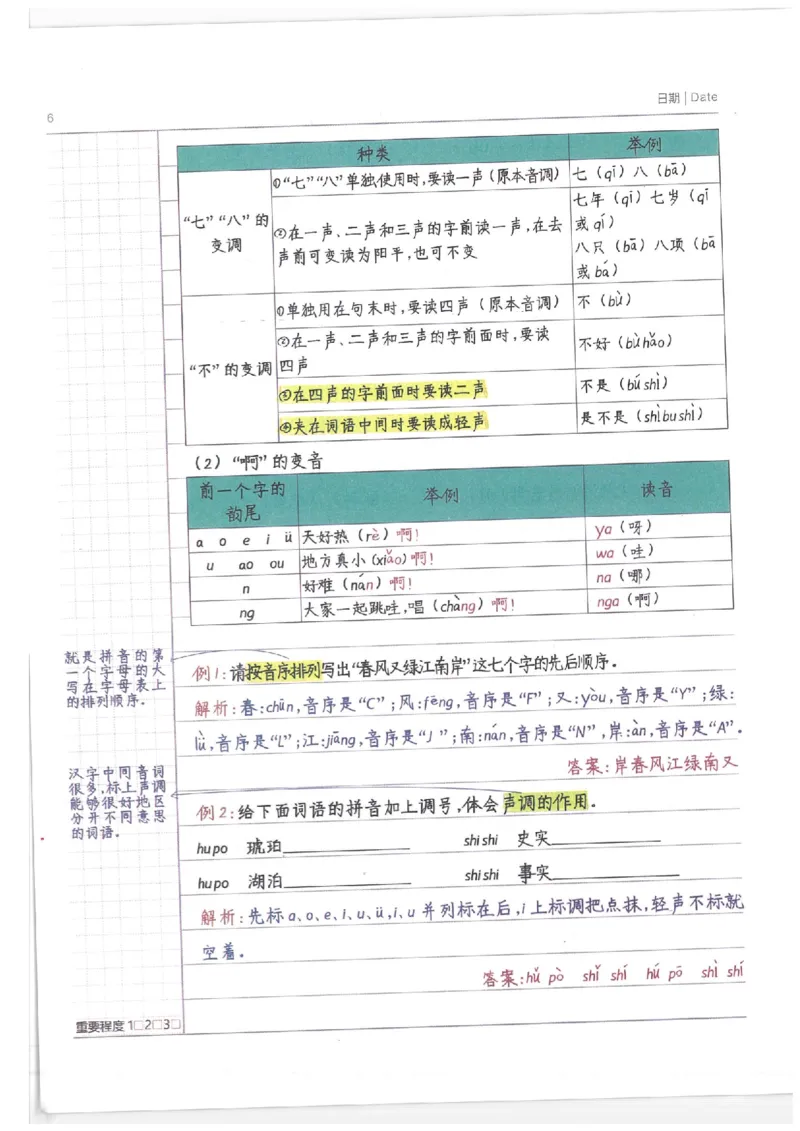 日期 | Date
6
种类 举例
“七”“八”的变调
①“七”“八”单独使用时,要读一声(原本音调) 七(qī)八(bā)
②在一声、二声和三声的字前读一声,在去
声前可变读为阳平,也可不变
七年(qī)七岁(qī
或qí)
八尺(bā)八项(bā
或bá)
“不”的变调
①单独用在句末时,要读四声(原本音调) 不(bù)
②在一声、二声和三声的字前面时,要读
四声
不好(bùhǎo)
③在四声的字前面时要读二声 不是(búshì)
④夹在词语中间时要读成轻声 是不是(shìbushì)
(2)“啊”的变音
前一个字的
韵尾
举例 读音
a o e i ü 天好热(rè)啊! ya(呀)
u ao ou 地方真小(xiǎo)啊! wa(哇)
n 好难(nán)啊! na(哪)
ng 大家一起跳哇,唱(chàng)啊! nga(啊)
就是拼音的第
一个字母的大
写在字母表上
的排列顺序。
例1:请按音序排列写出“春风又绿江南岸”这七个字的先后顺序。
解析:春:chūn,音序是“C”;风:fēng,音序是“F”;又:yòu,音序是“Y”;绿:
lǜ,音序是“L”;江:jiāng,音序是“J”;南:nán,音序是“N”,岸:àn,音序是“A”。
答案:岸春风江绿南又
汉字中同音词
很多,标上声调
能够很好地区
分开不同意思
的词语。
例2:给下面词语的拼音加上调号,体会声调的作用。
hu po 琥珀 shi shi 史实
hu po 湖泊 shi shi 事实
解析:先标a、o、e、i、u、ü,i、u并列标在后,i上标调把点抹,轻声不标就
空着。
答案:hǔ pò shǐ shí hú pō shì shí
重要程度 1□2□3□